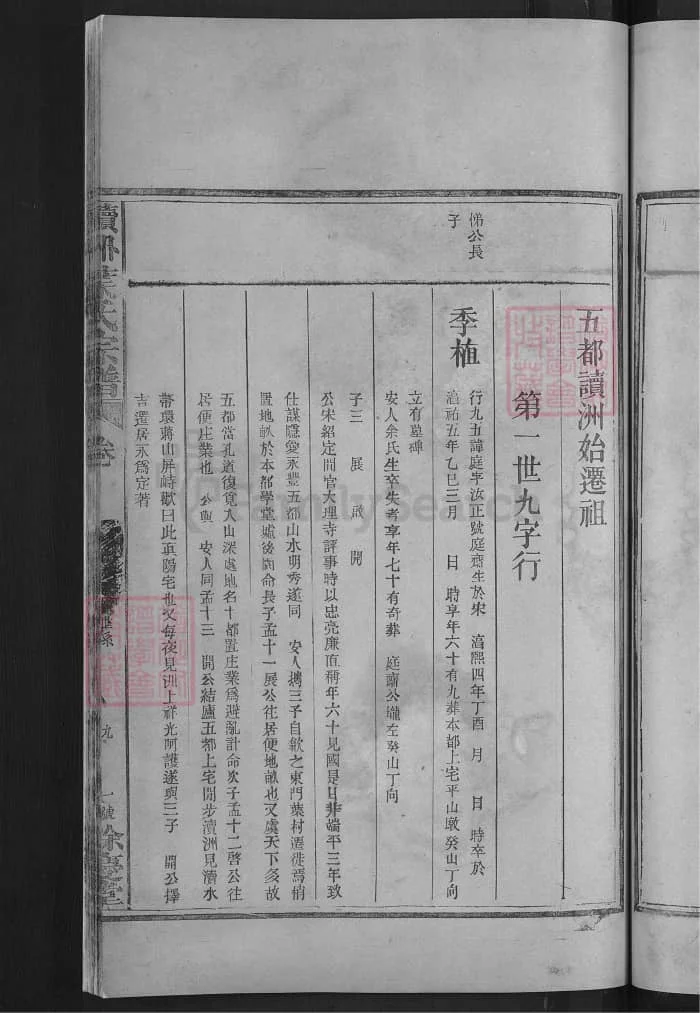 五都讀洲始遷祖
第一世九字行
悌公長子
季植
行九五諱庭字汝正號庭齋生於宋 湻熙四年丁酉 月 日 時卒於
湻祐五年乙巳三月 日 時享年六十有九葬本都上宅平山墩癸山丁向
立有墓碑
安人余氏生卒失考享年七十有奇葬 庭齋公壠左癸山丁向
子三 展 啟 開
公宋紹定間官大理寺評事時以忠亮廉直稱年六十見國是日非端平三年致
仕謀隱愛永豐五都山水明秀遂同 安人攜三子自歙之東門葉村遷徙焉稍
置地畝於本都學堂壚後園命長子孟十一展公往居便地畝也又虞天下多故
五都當孔道復覓入山深處地名十都置庄業為避亂計命次子孟十二啓公往
居便庄業也 公與 安人同孟十三 開公結廬五都上宅閒步瀆洲見瀆水
帶環蔣山屏峙歎曰此眞陽宅也又每夜見洲上祥光阿護遂與三子 開公擇
吉遷居永為定著
葉氏宗譜 卷
九
一號
餘慶堂
FamilySearch